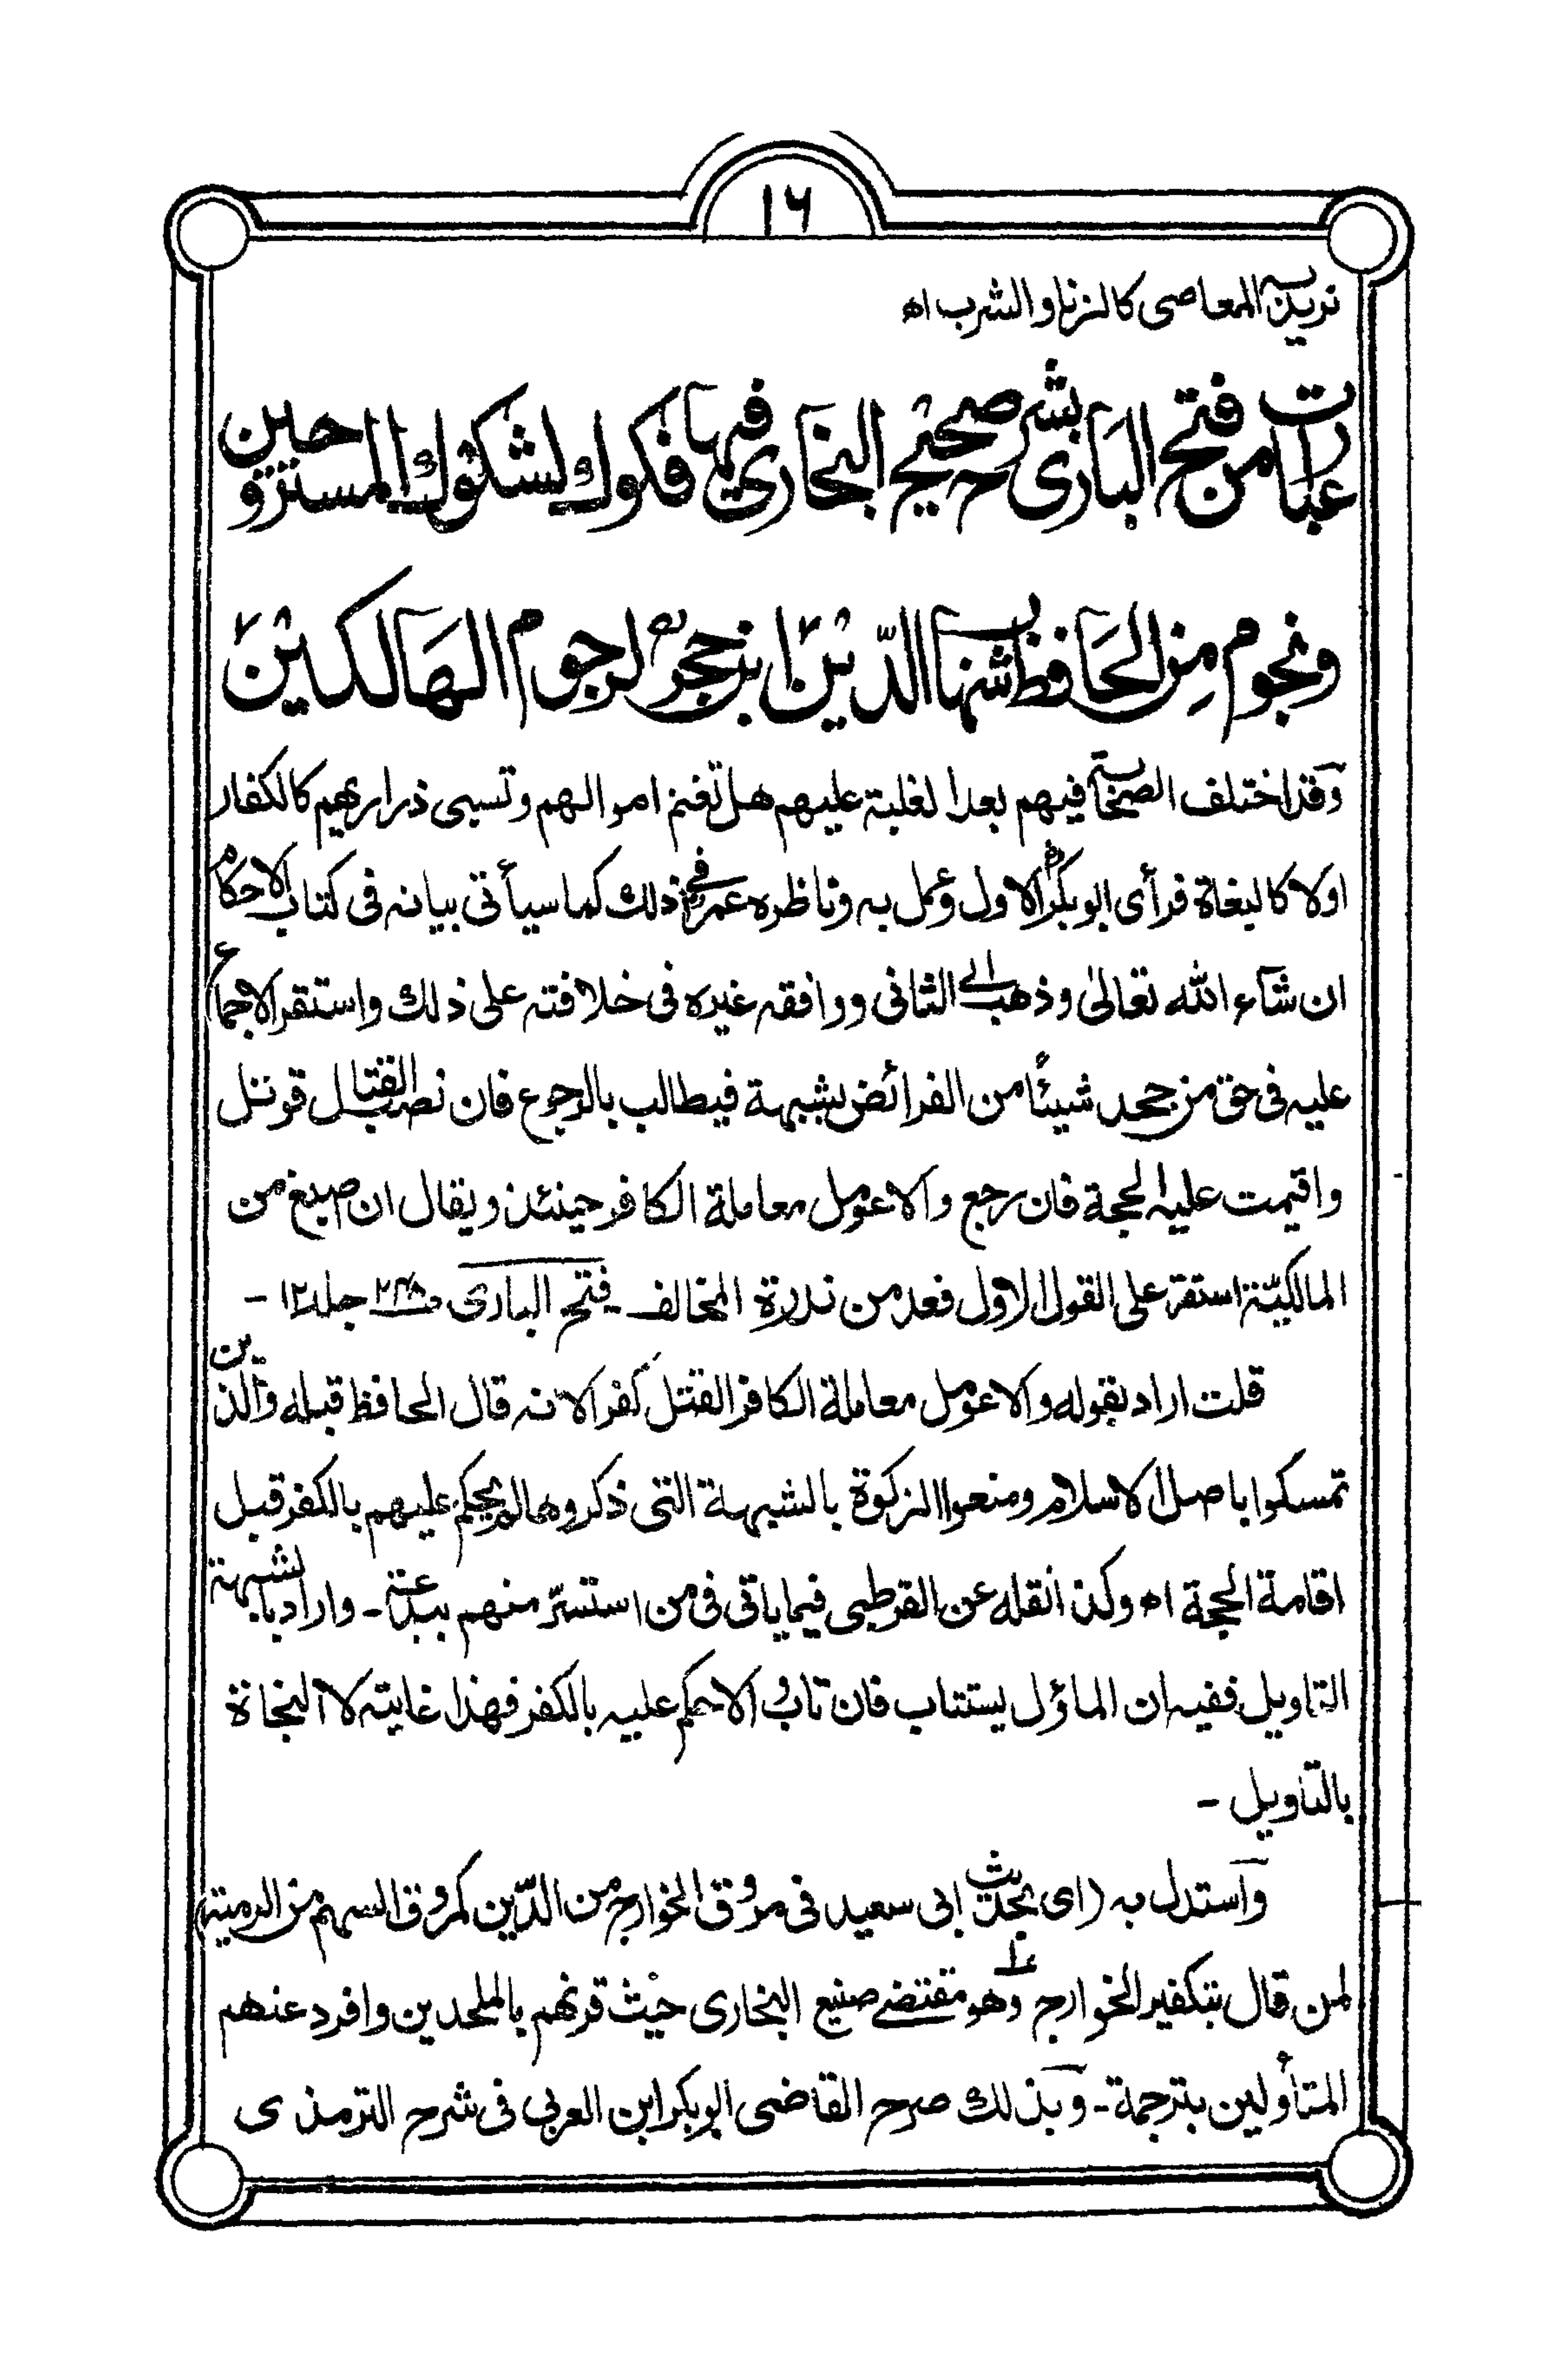 ۱۶
نريد به المعاصى كالزنا والشرب اھ
عبارات من فتح البارى بشرح صحيح البخارى فيها فكوك لشكوك المستروحين
ونجوم من الحافظ شهاب الدين ابن حجرؒ لرجوم الهالكين
وقد اختلف الصحابة فيهم بعد الغلبة عليهم هل تغنم اموالهم وتسبى ذراريهم كالكفار
اولا كالبغاة فرأى ابوبكرؓ الاول وعمل به وناظره عمرؓ فى ذلك كما سيأتى بيانه فى كتاب الاحكام
ان شآء الله تعالىٰ وذهب الى الثانى ووافقه غيره فى خلافته على ذلك واستقر الاجماع
عليه فى حق من جحد شيئًا من الفرائض بشبهة فيطالب بالرجوع فان نصب القتال قوتل
واقيمت عليه الحجة فان رجع والا عومل معاملة الكافر حينئذ ويقال ان اصبغ من
المالكيّة استقر على القول الاول فعد من ندرة المخالف ـ فتح البارى جلد ۱۲ ـ
قلت اراد بقوله والا عومل معاملة الكافر القتل كفرا لانه قال الحافظ قبله والذين
تمسكوا باصل الاسلام ومنعوا الزكوة بالشبهة التى ذكروها لم يحكم عليهم بالكفر قبل
اقامة الحجة اھ وكذا نقله عن القرطبى فيما ياتى فى من استسرّ منهم ببدعة ـ واراد بالشبهة
التاويل ففيه ان الماؤل يستتاب فان تاب والا حكم عليه بالكفر فهذا غايته لا النجاة
بالتاويل ـ
واستدل به (اى بحديث ابى سعيد فى مروق الخوارج من الدّين كمروق السهم من الرمية)
لمن قال بتكفير الخوارج وهو مقتضى صنيع البخارى حيث قرنهم بالملحدين وافرد عنهم
المتأولين بترجمة ـ وبذلك صرح القاضى ابوبكر ابن العربى فى شرح الترمذى